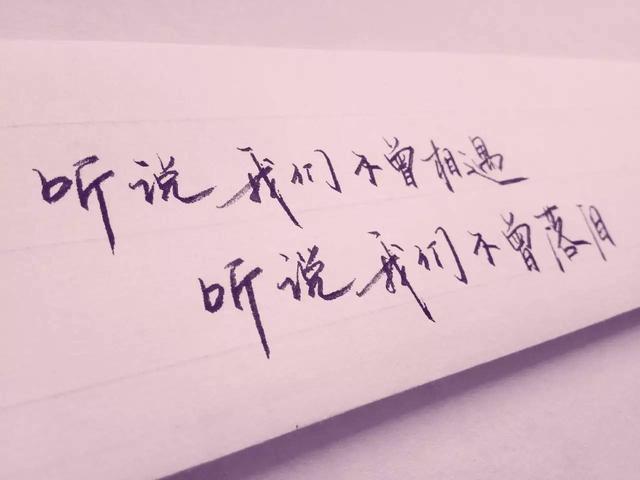 听说我们不曾相遇
听说我们不曾落泪